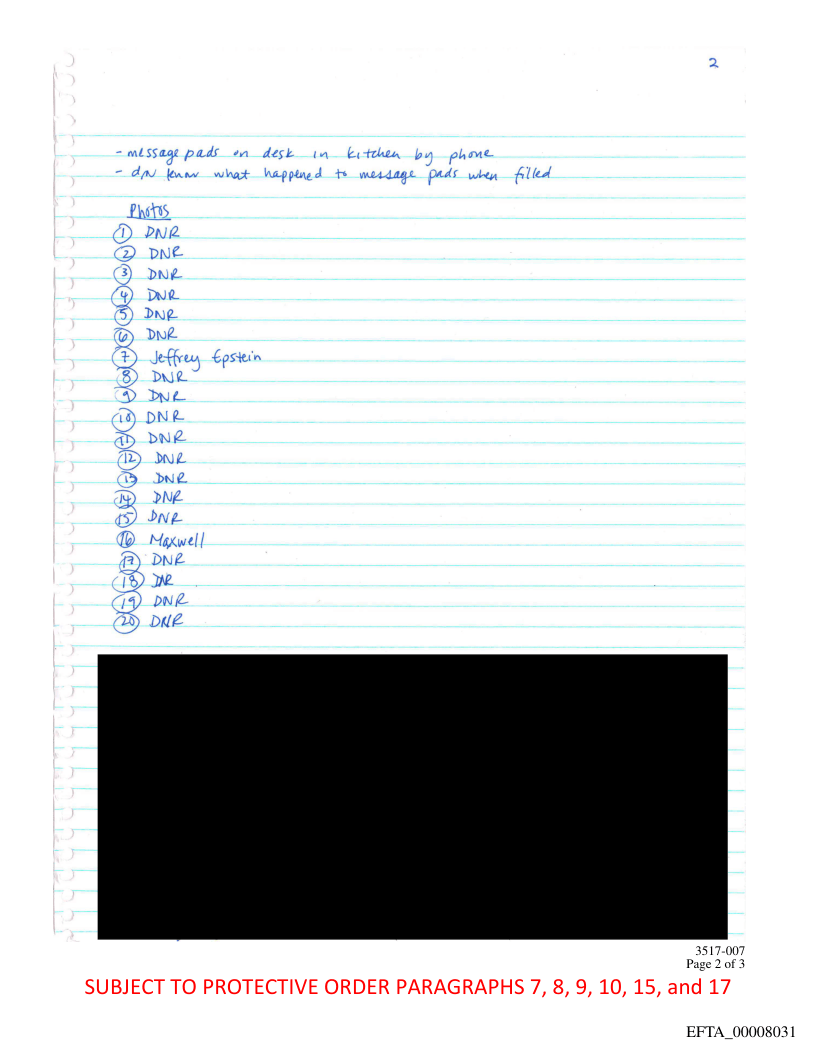 2
- message pads on desk in kitchen by phone
- dN know what happened to message pads when filled
Photos
① DNR
② DNR
③ DNR
④ DNR
⑤ DNR
⑥ DNR
⑦ Jeffrey Epstein
⑧ DNR
⑨ DNR
⑩ DNR
⑪ DNR
⑫ DNR
⑬ DNR
⑭ DNR
⑮ DNR
⑯ Maxwell
⑰ DNR
⑱ DNR
⑲ DNR
⑳ DNR
3517-007
Page 2 of 3
SUBJECT TO PROTECTIVE ORDER PARAGRAPHS 7, 8, 9, 10, 15, and 17
EFTA_00008031